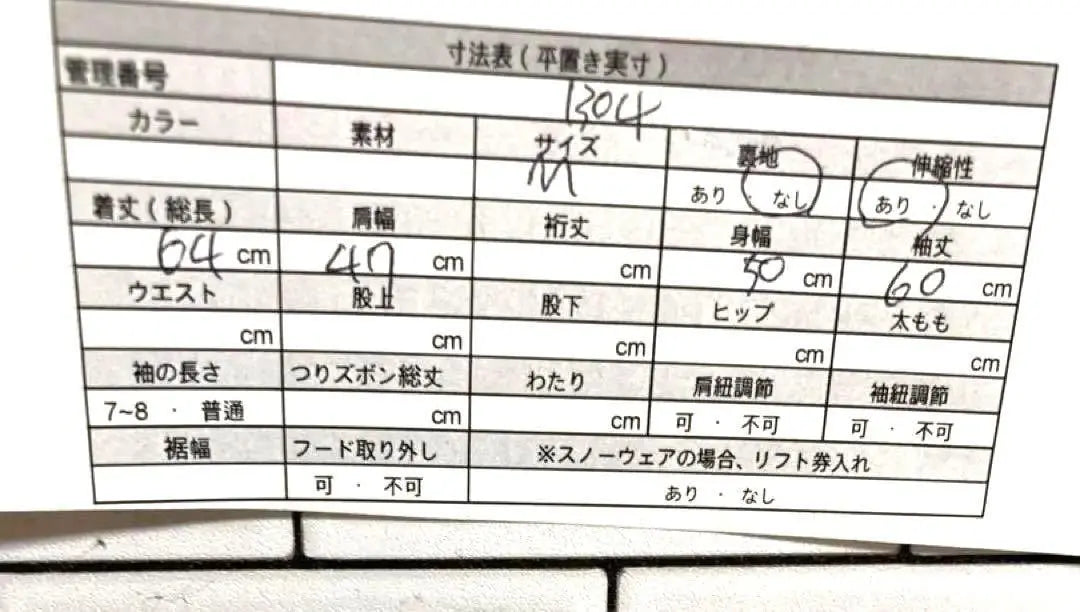 寸法表(平置き実寸)
管理番号 1304
カラー 素材 サイズ 裏地 伸縮性
M あり ・ なし あり ・ なし
着丈(総長) 肩幅 裄丈 身幅 袖丈
64 cm 47 cm cm 50 cm 60 cm
ウエスト 股上 股下 ヒップ 太もも
cm cm cm cm cm
袖の長さ つりズボン総丈 わたり 肩紐調節 袖紐調節
7~8 ・ 普通 cm cm 可 ・ 不可 可 ・ 不可
裾幅 フード取り外し ※スノーウェアの場合、リフト券入れ
可 ・ 不可 あり ・ なし